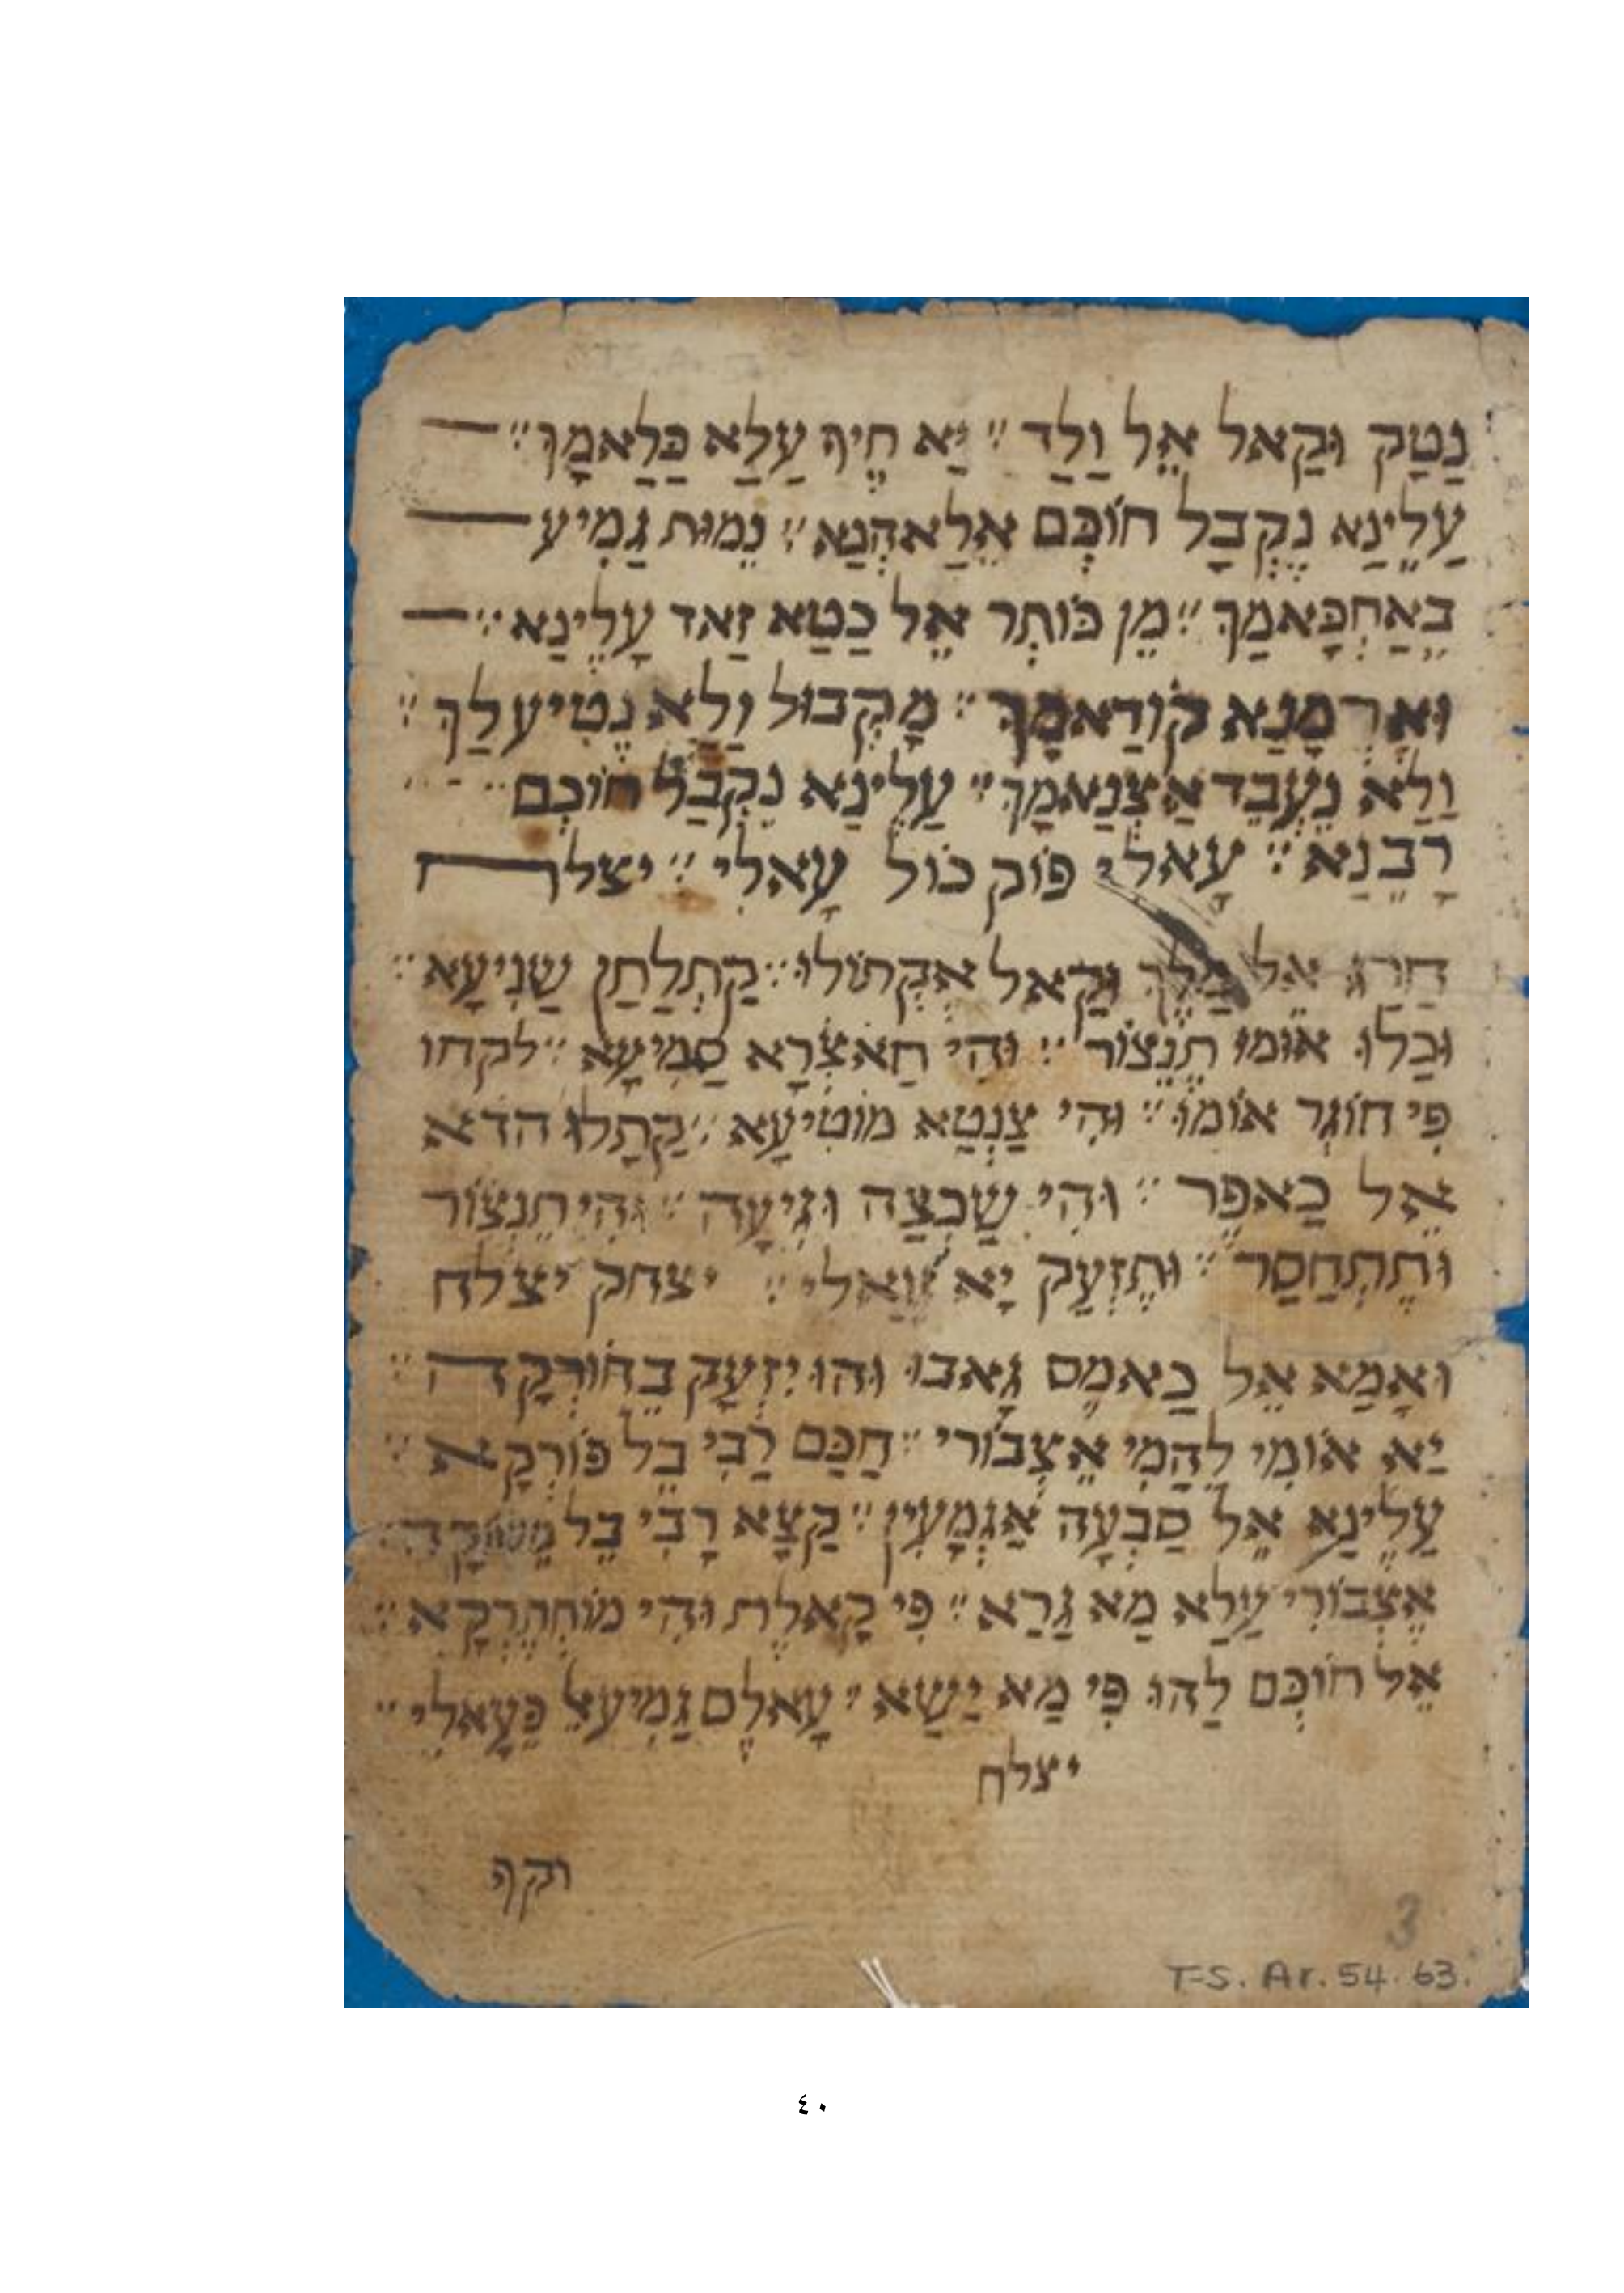 נַטַק וּקַאל אֵל וַלַד ׃ יַא חֶיף עַלַא כַּלַאמָך ׃
עַלֵינַא נֶקְבָל חוֹכְּם אֵלַאהְנַא ׃ נֵמוּת גַמִיע
בֵאַחְכָּאמַךְ ׃ מֵן כּוֹתְר אֵל כַטַא זַאד עָלֵינַא ׃
וּאָרְמָנַא קוֹדַאמָךְ ׃ מָקְבוּל וַלַא נֶטִיע לַךְ ׃
וַלַא נֵעְבֵד אַצְנַאמָךְ ׃ עַלֵינַא נֵקְבַל חוֹכְם
רָבֵנַא ׃ עָאלִי פוֹק כוֹל עָאלִי ׃ יצלח
חַרַג אֵל מַלֶך וּקַאל אֶקְתוֹלוּ ׃ קַתְלַתַן שַנִיעָא ׃
וּכַלוּ אוֹמוּ תֶנֵצוֹר ׃ וּהִי חַאצִׄרָא סַמִיעָא ׃ לקחו
פִי חוֹגְר אוֹמוּ ׃ וּהִי צַנְטַא מוֹטִיעָא ׃ קַתַלוּ הדא
אֵל כַאפֶר ׃ וּהִי שַכְצַה וּגִיעָה ׃ וּהִי תֵנְצוֹר
וּתֶתְחַסַר ׃ וּתֶזְעַק יָא ׃ יצחק יצלח
וּאָמַא אֵל כַאמֶס גָאבוּ וּהוּ יִזְעָק בֵחוֹרְקָה ׃
יַא אוֹמִי לַהַמִי אֵצְבוֹרי ׃ חַכַּם רַבִי בֵל פוֹרְקָא ׃
עַלֵינַא אֵל סַבְעָה אַגְמָעִין ׃ קַצָא רָבִי בֵל
אֶצְבוֹרִי עַלַא מַא גַרַא ׃ פִי קָאלֶת וּהִי מוֹחְתֶרְקָא ׃
אֵל חוֹכְּם לַהוּ פִּי מַא יַשַא ׃ עָאלֶם גַמִיע אֵל פֵעָאלִי ׃
יצלח
וקף
3
T-S. Ar. 54. 63.
٤٠